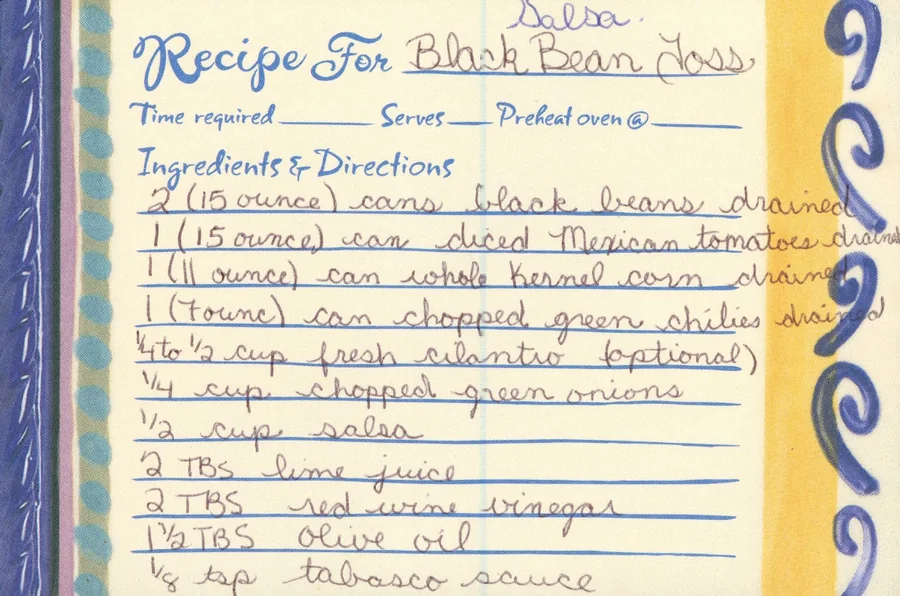 Salsa.
Recipe For Black Bean Toss
Time required Serves Preheat oven @
Ingredients & Directions
2 (15 ounce) cans black beans drained
1 (15 ounce) can diced Mexican tomatoes drained
1 (11 ounce) can whole Kernel corn drained
1 (7ounc) can chopped green chilies drained
1/4 to 1/2 cup fresh cilantro (optional)
1/4 cup chopped green onions
1/2 cup salsa
2 TBS lime juice
2 TBS red wine vinegar
1 1/2 TBS Olive oil
1/8 tsp tabasco sauce